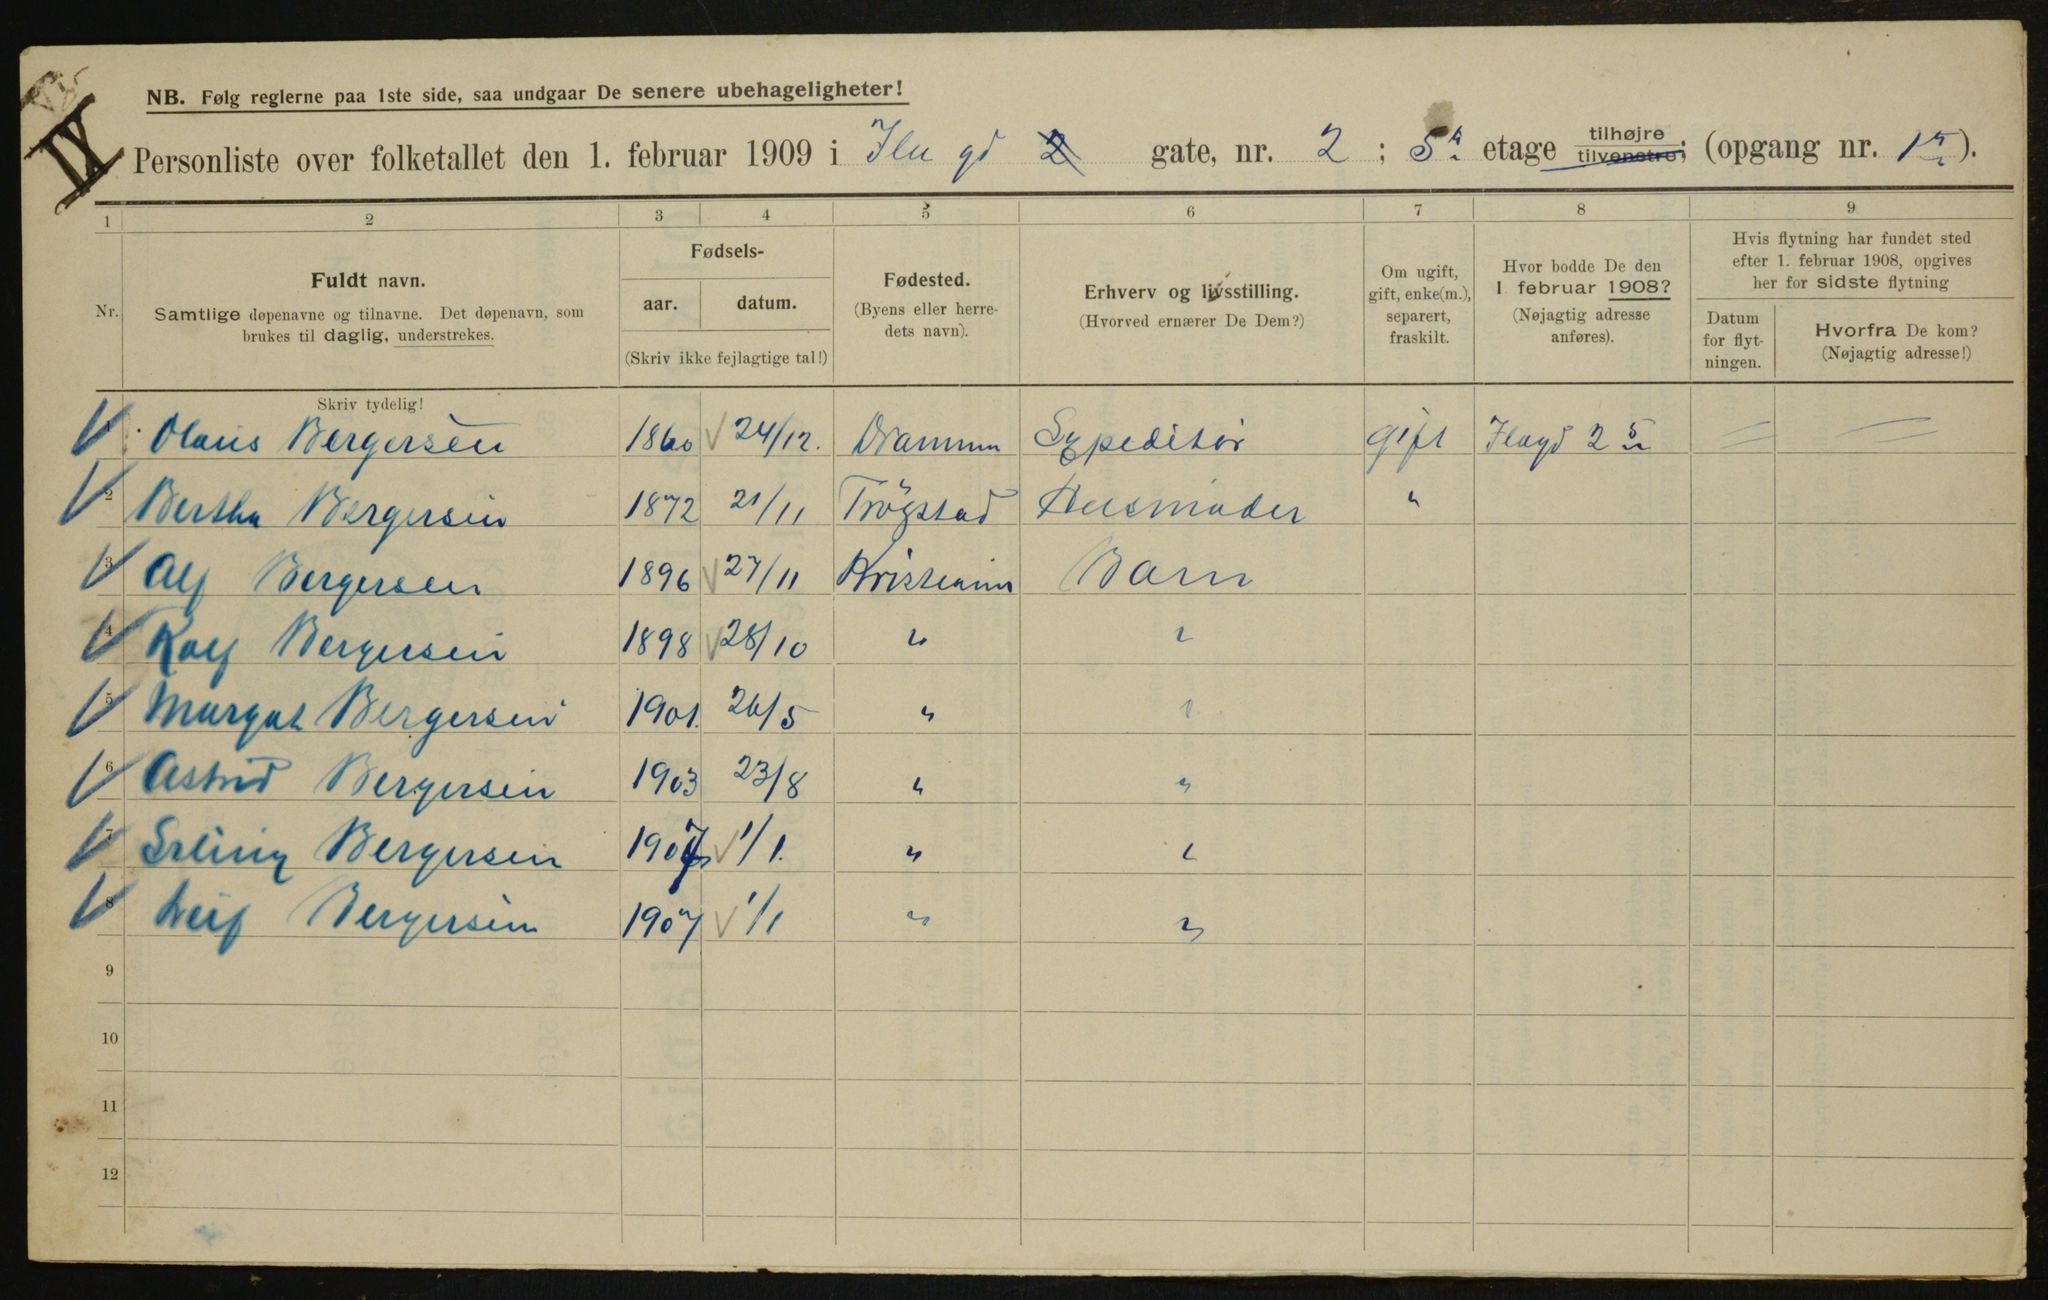 IX
NB. Følg reglerne paa 1ste side, saa undgaar De senere ubehageligheter!
Personliste over folketallet den 1. februar 1909 i Ila gd 2 gate, nr. 2 ; 5 etage tilhøjre tilvenstre; (opgang nr. 1 ).
1 2 3 4 5 6 7 8 9
Nr.
Fuldt navn.
Samtlige døpenavne og tilnavne. Det døpenavn, som
brukes til daglig, understrekes.
Fødsels-
aar. datum.
(Skriv ikke fejlagtige tal!)
Fødested.
(Byens eller herre-
dets navn).
Erhverv og livsstilling.
(Hvorved ernærer De Dem?)
Om ugift,
gift, enke(m.),
separert,
fraskilt.
Hvor bodde De den
1 februar 1908?
(Nøjagtig adresse
anføres).
Hvis flytning har fundet sted
efter 1. februar 1908, opgives
her for sidste flytning
Datum
for flyt-
ningen.
Hvorfra De kom?
(Nøjagtig adresse!)
Skriv tydelig!
1 Olaus Bergersen 1860 24/12. Drammen Expeditør gift Ilagd 2 5
2 Bertha Bergersen 1872 21/11 Trøgstad Husmoder "
3 Alf Bergersen 1896 27/11 Kristiania Barn
4 Rolf Bergersen 1898 28/10 " "
5 Margit Bergersen 1901. 26/5 " "
6 Astrid Bergersen 1903 23/8 " "
7 Erling Bergersen 1907 1/1. " "
8 Leif Bergersen 1907 1/1 " "
9
10
11
12